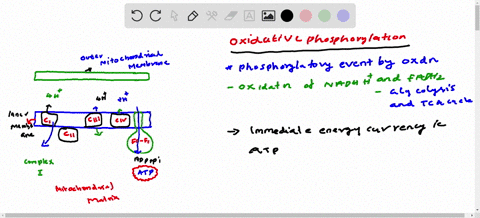 Oxidative phosphorylation
* phosphorylatory event by oxdn
- Oxidatn of NADPH H+ and FADH2
- Glycolysis
and TCA cycle
→ Immediate energy currency is
ATP
outer
mitochondrial
Membrane
4H+
4H+
2H+
Inner
membrane
CI
CII
CIII
CIV
F0-F1
ADP+Pi
ATP
Complex
I
Mitochondrial
Matrix